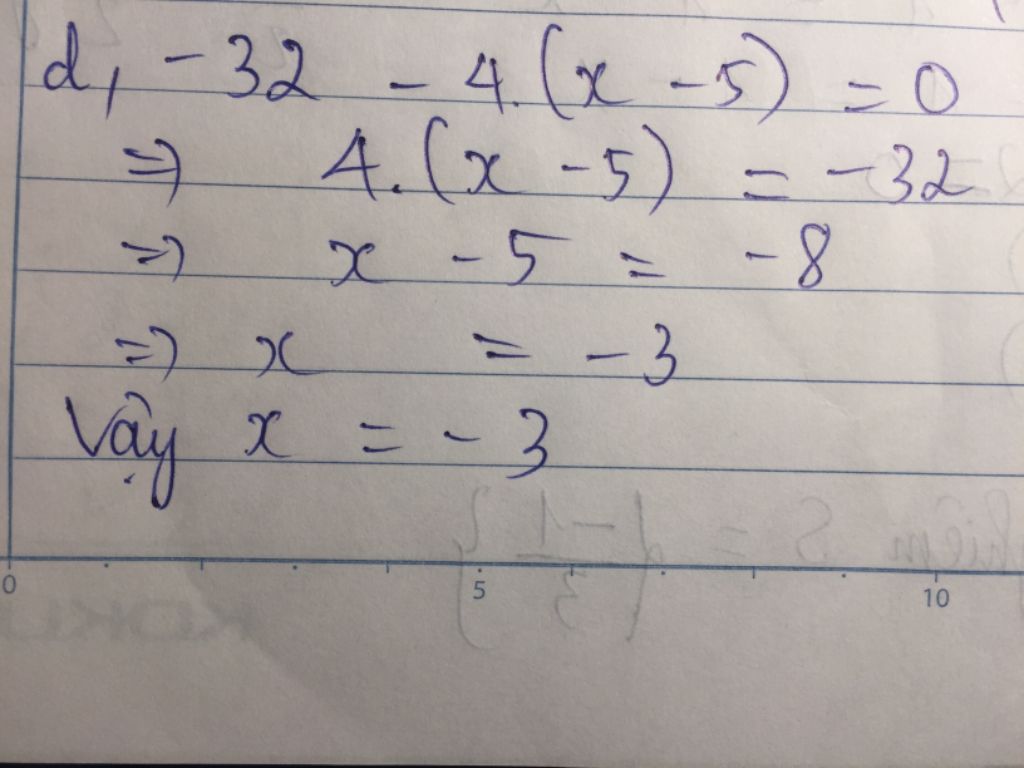 d, -32 - 4.(x - 5) = 0
=> 4.(x - 5) = -32
=> x - 5 = -8
=> x = -3
Vậy x = -3
0 5 10